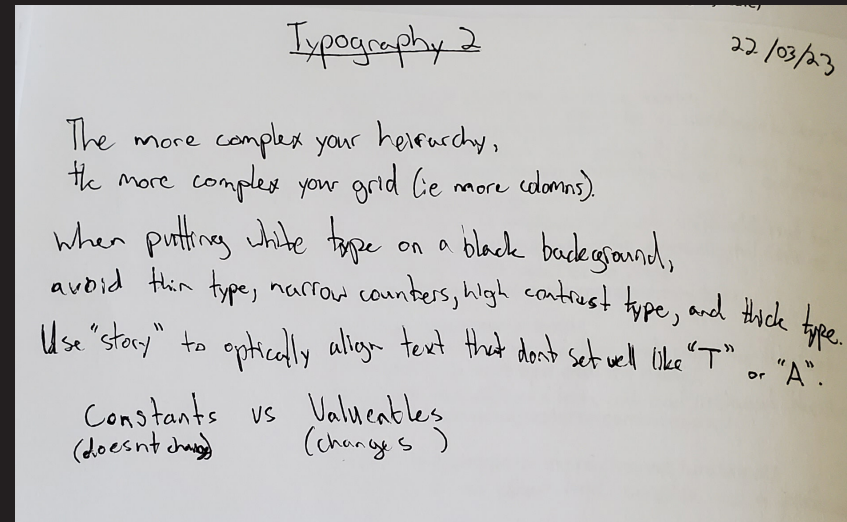 Typography 2
22/03/23
The more complex your heirarchy,
the more complex your grid (ie more colomns).
When putting white type on a black background,
avoid thin type, narrow counters, high contrast type, and thick type.
Use "story" to optically align text that dont set well like "T" or "A".
Constants vs Valueables
(doesnt change) (changes)